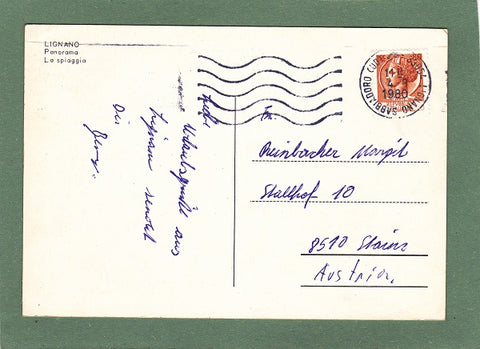 LIGNANO
Panorama
La spiaggia
LIGNANO SABBIADORO
1980
Urlaubsgrüße aus
Lignano sendet
Dir
Fr.
Reinbacher Margit
Stallhof 10
8510 Stainz
Austria.